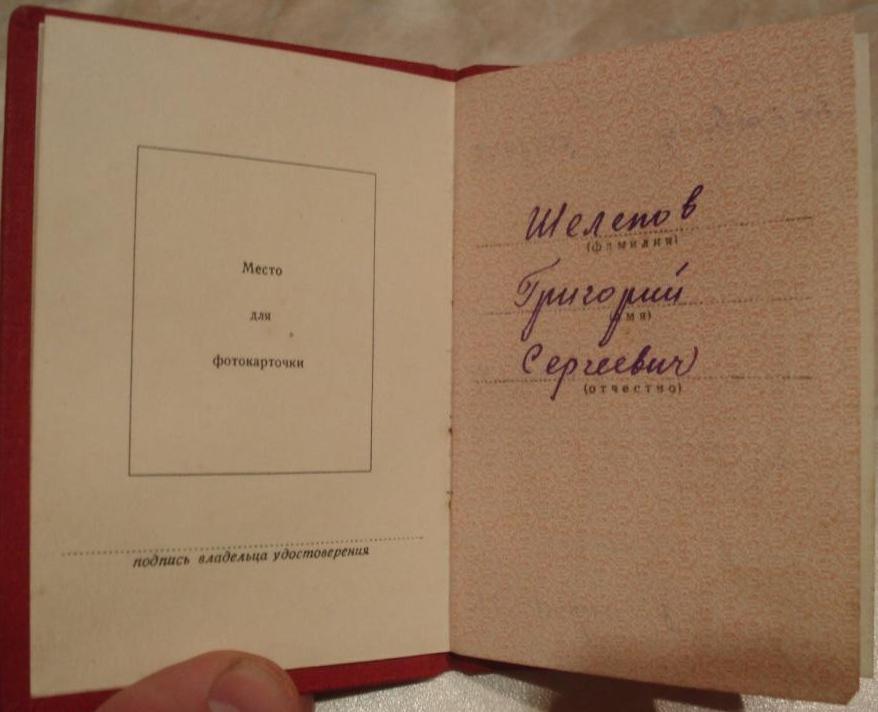 Место
для
фотокарточки
подпись владельца удостоверения
Шелепов
(фамилия)
Григорий
(имя)
Сергеевич
(отчество)